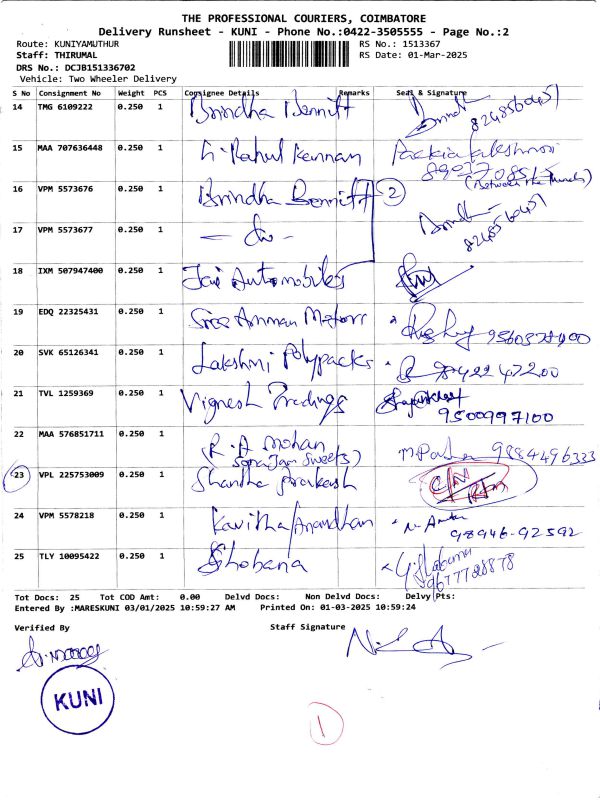 THE PROFESSIONAL COURIERS, COIMBATORE
Delivery Runsheet - KUNI - Phone No.:0422-3505555 - Page No.:2
Route: KUNIYAMUTHUR
RS No.: 1513367
Staff: THIRUMAL
RS Date: 01-Mar-2025
DRS No.: DCJB151336702
Vehicle: Two Wheeler Delivery
S No Consignment No Weight PCS Consignee Details Remarks Seal & Signature
14 TMG 6109222 0.250 1 Brindha Bennitt
8248560451
15 MAA 707636448 0.250 1 Rahul Kannan Packia lakshmi
(Between the hands)
16 VPM 5573676 0.250 1 Brindha Bennitt 2
17 VPM 5573677 0.250 1 - do -
8248560451
18 IXM 507947400 0.250 1 Jai Automobiles
19 EDQ 22325431 0.250 1 Sree Amman Motors
20 SVK 65126341 0.250 1 Lakshmi Polypacks 9842247200
21 TVL 1259369 0.250 1 Vignesh Tradings
9500997100
22 MAA 576851711 0.250 1 R.A Mohan 9884496333
23 VPL 225753009 0.250 1 Shantha Prakash
24 VPM 5578218 0.250 1 Kavitha/Anandhan
98946-92592
25 TLY 10095422 0.250 1 Shobana
9677728878
Tot Docs: 25 Tot COD Amt: 0.00 Delvd Docs: Non Delvd Docs: Delvy Pts:
Entered By :MARESKUNI 03/01/2025 10:59:27 AM Printed On: 01-03-2025 10:59:24
Verified By
Staff Signature
KUNI
1